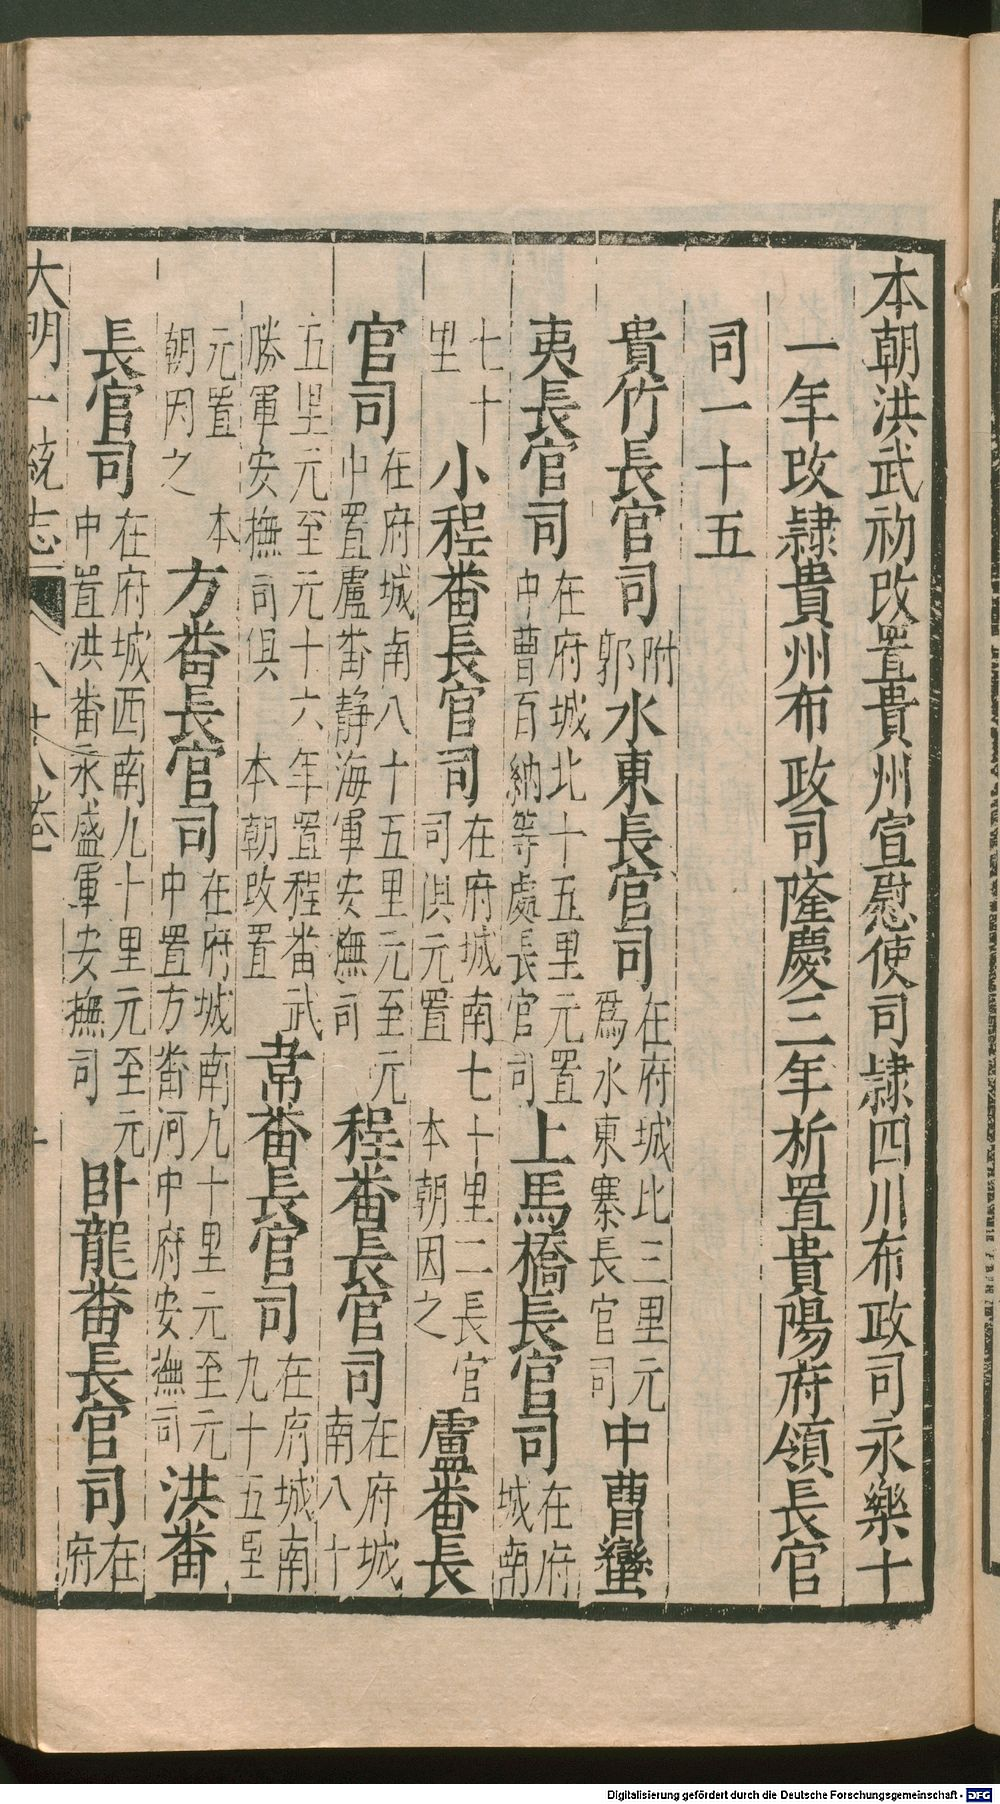 本朝洪武初改置貴州宣慰使司隷四川布政司永樂十
一年改隷貴州布政司隆慶三年析置貴陽府領長官
司一十五
貴竹長官司附郭水東長官司在府城比三里元爲水東寨長官司中曹蠻
夷長官司在府城北十五里元置中曹百納等處長官司上馬橋長官司在府城南
七十里小程番長官司在府城南七十里二長官司俱元置本朝因之盧番長
官司在府城南八十五里元至元中置盧番静海軍安撫司程番長官司在府城南八十
五里元至元十六年置程番武勝軍安撫司俱本朝改置韋番長官司在府城南九十五里
元置本朝因之方番長官司在府城南九十里元至元中置方番河中府安撫司洪番
長官司在府城西南九十里元至元中置洪番永盛軍安撫司卧龍番長官司在府
大明一統志 八十八卷
Digitalisierung gefördert durch die Deutsche Forschungsgemeinschaft - DFG